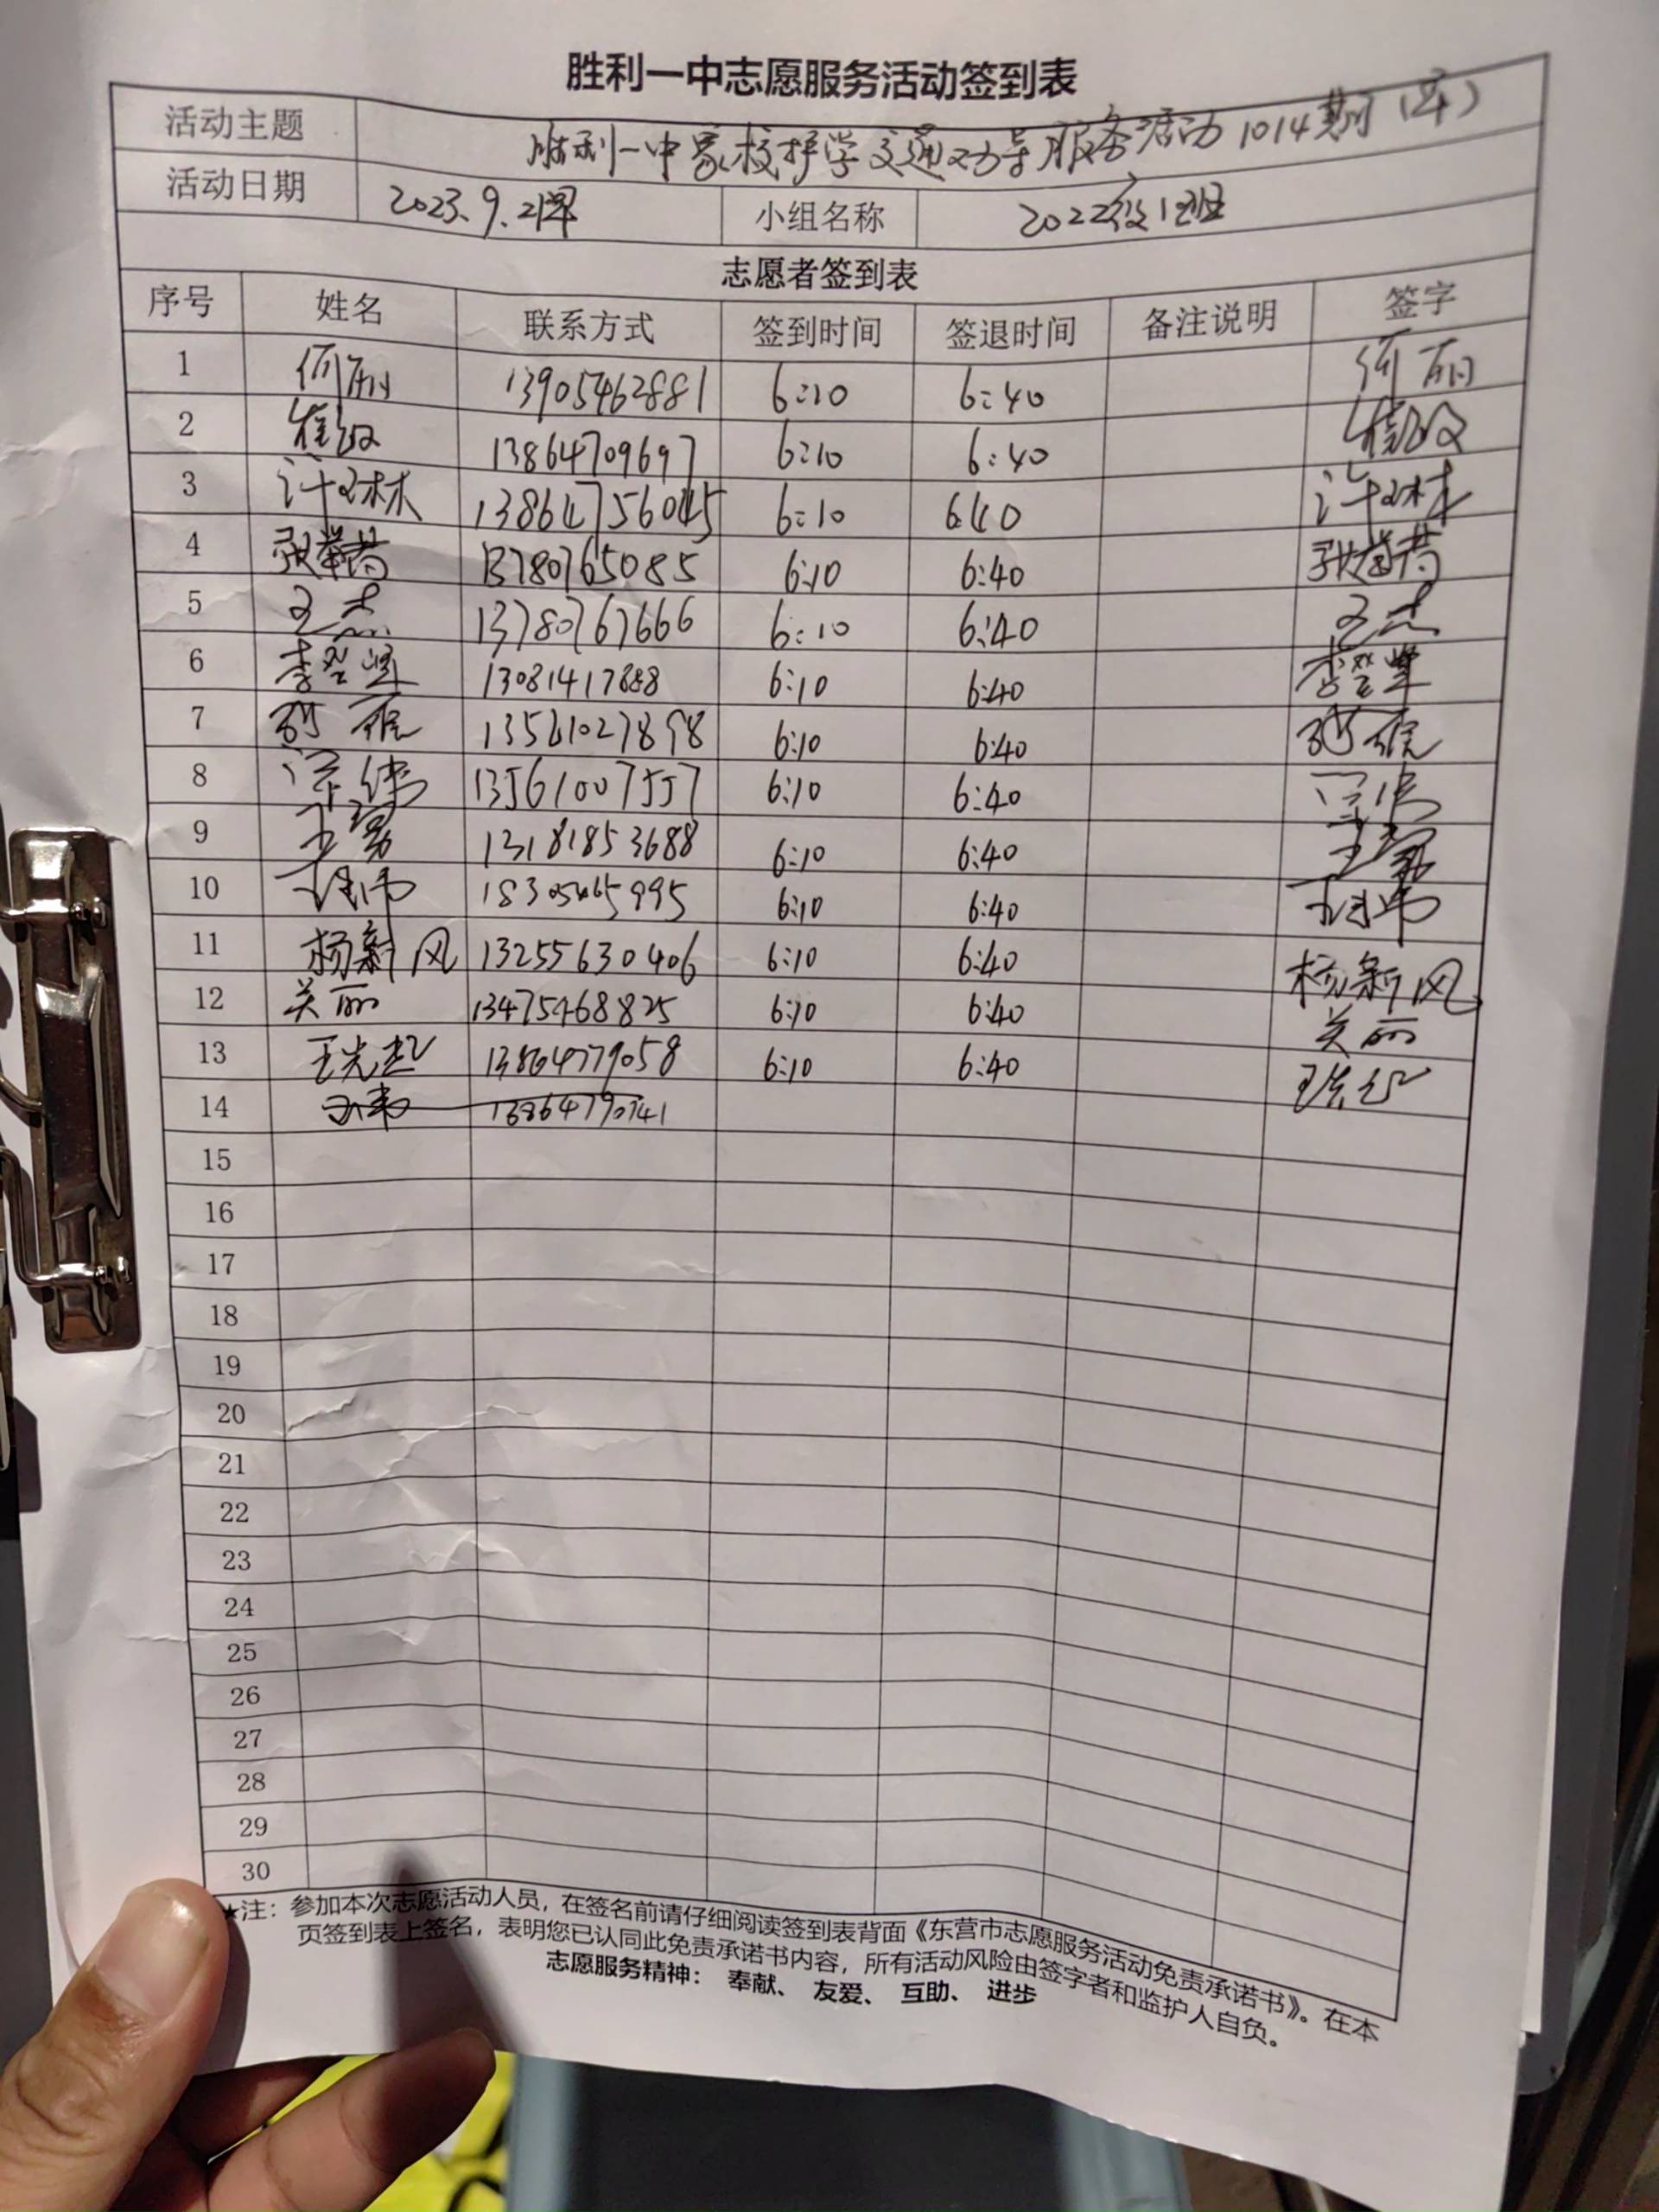 胜利一中志愿服务活动签到表
活动主题 胜利一中家校护学交通劝导服务活动1014期(早)
活动日期 2023.9.21早 小组名称 2022级12班
志愿者签到表
序号 姓名 联系方式 签到时间 签退时间 备注说明 签字
1 何丽 13905462881 6:10 6:40 何丽
2 13864709697 6:10 6:40
3 13864756045 6:10 6:40
4 13780765085 6:10 6:40
5 13780767666 6:10 6:40
6 13081417888 6:10 6:40
7 13561027898 6:10 6:40
8 13561007557 6:10 6:40
9 13181853688 6:10 6:40
10 18305465995 6:10 6:40
11 杨新风 13255630406 6:10 6:40 杨新风
12 关丽 13475468825 6:10 6:40 关丽
13 王光超 13864779058 6:10 6:40 王光超
14
15
16
17
18
19
20
21
22
23
24
25
26
27
28
29
30
★注：参加本次志愿活动人员，在签名前请仔细阅读签到表背面《东营市志愿服务活动免责承诺书》。在本
页签到表上签名，表明您已认同此免责承诺书内容，所有活动风险由签字者和监护人自负。
志愿服务精神： 奉献、 友爱、 互助、 进步